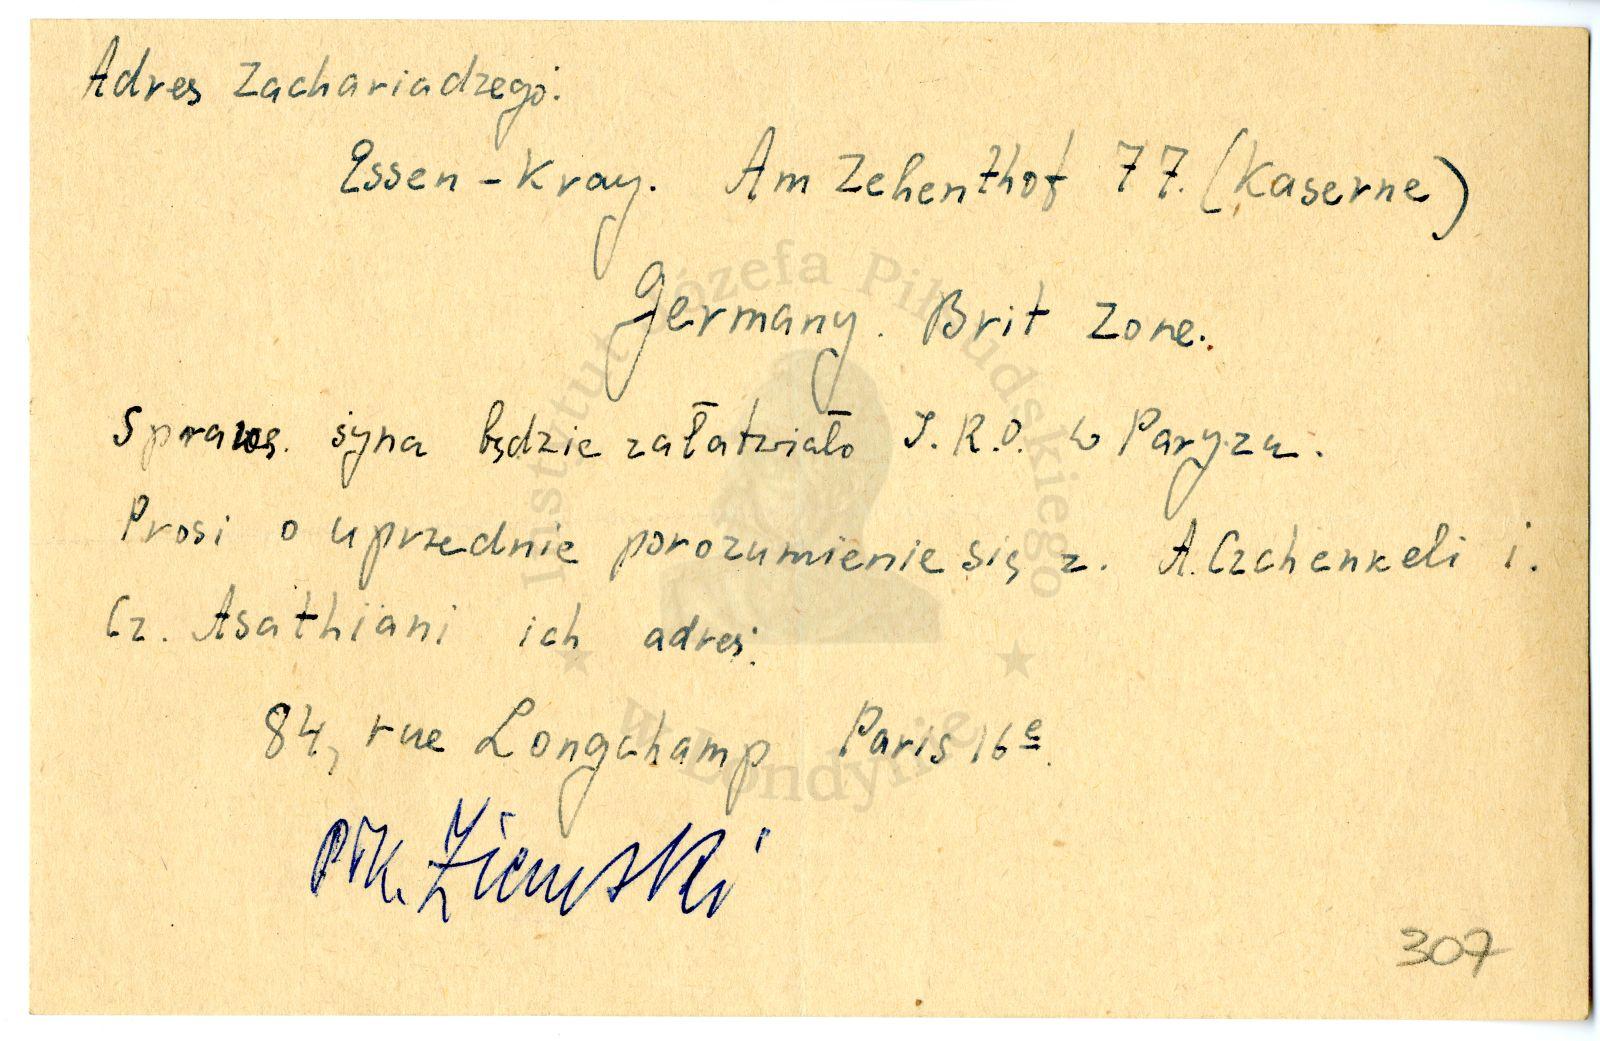 Adres Zachariadzego:
Essen-Kray. Am Zehenthof 77. (Kaserne)
Germany. Brit Zone.
Sprawę syna będzie załatwiało I.R.O. w Paryżu.
Prosi o uprzednie porozumienie się z. A. Czchenkeli i.
Cz. Asathiani ich adres:
84, rue Longchamp Paris 16e.
Płk. Ziemski
307
Instytut Józefa Piłsudskiego
w Londynie